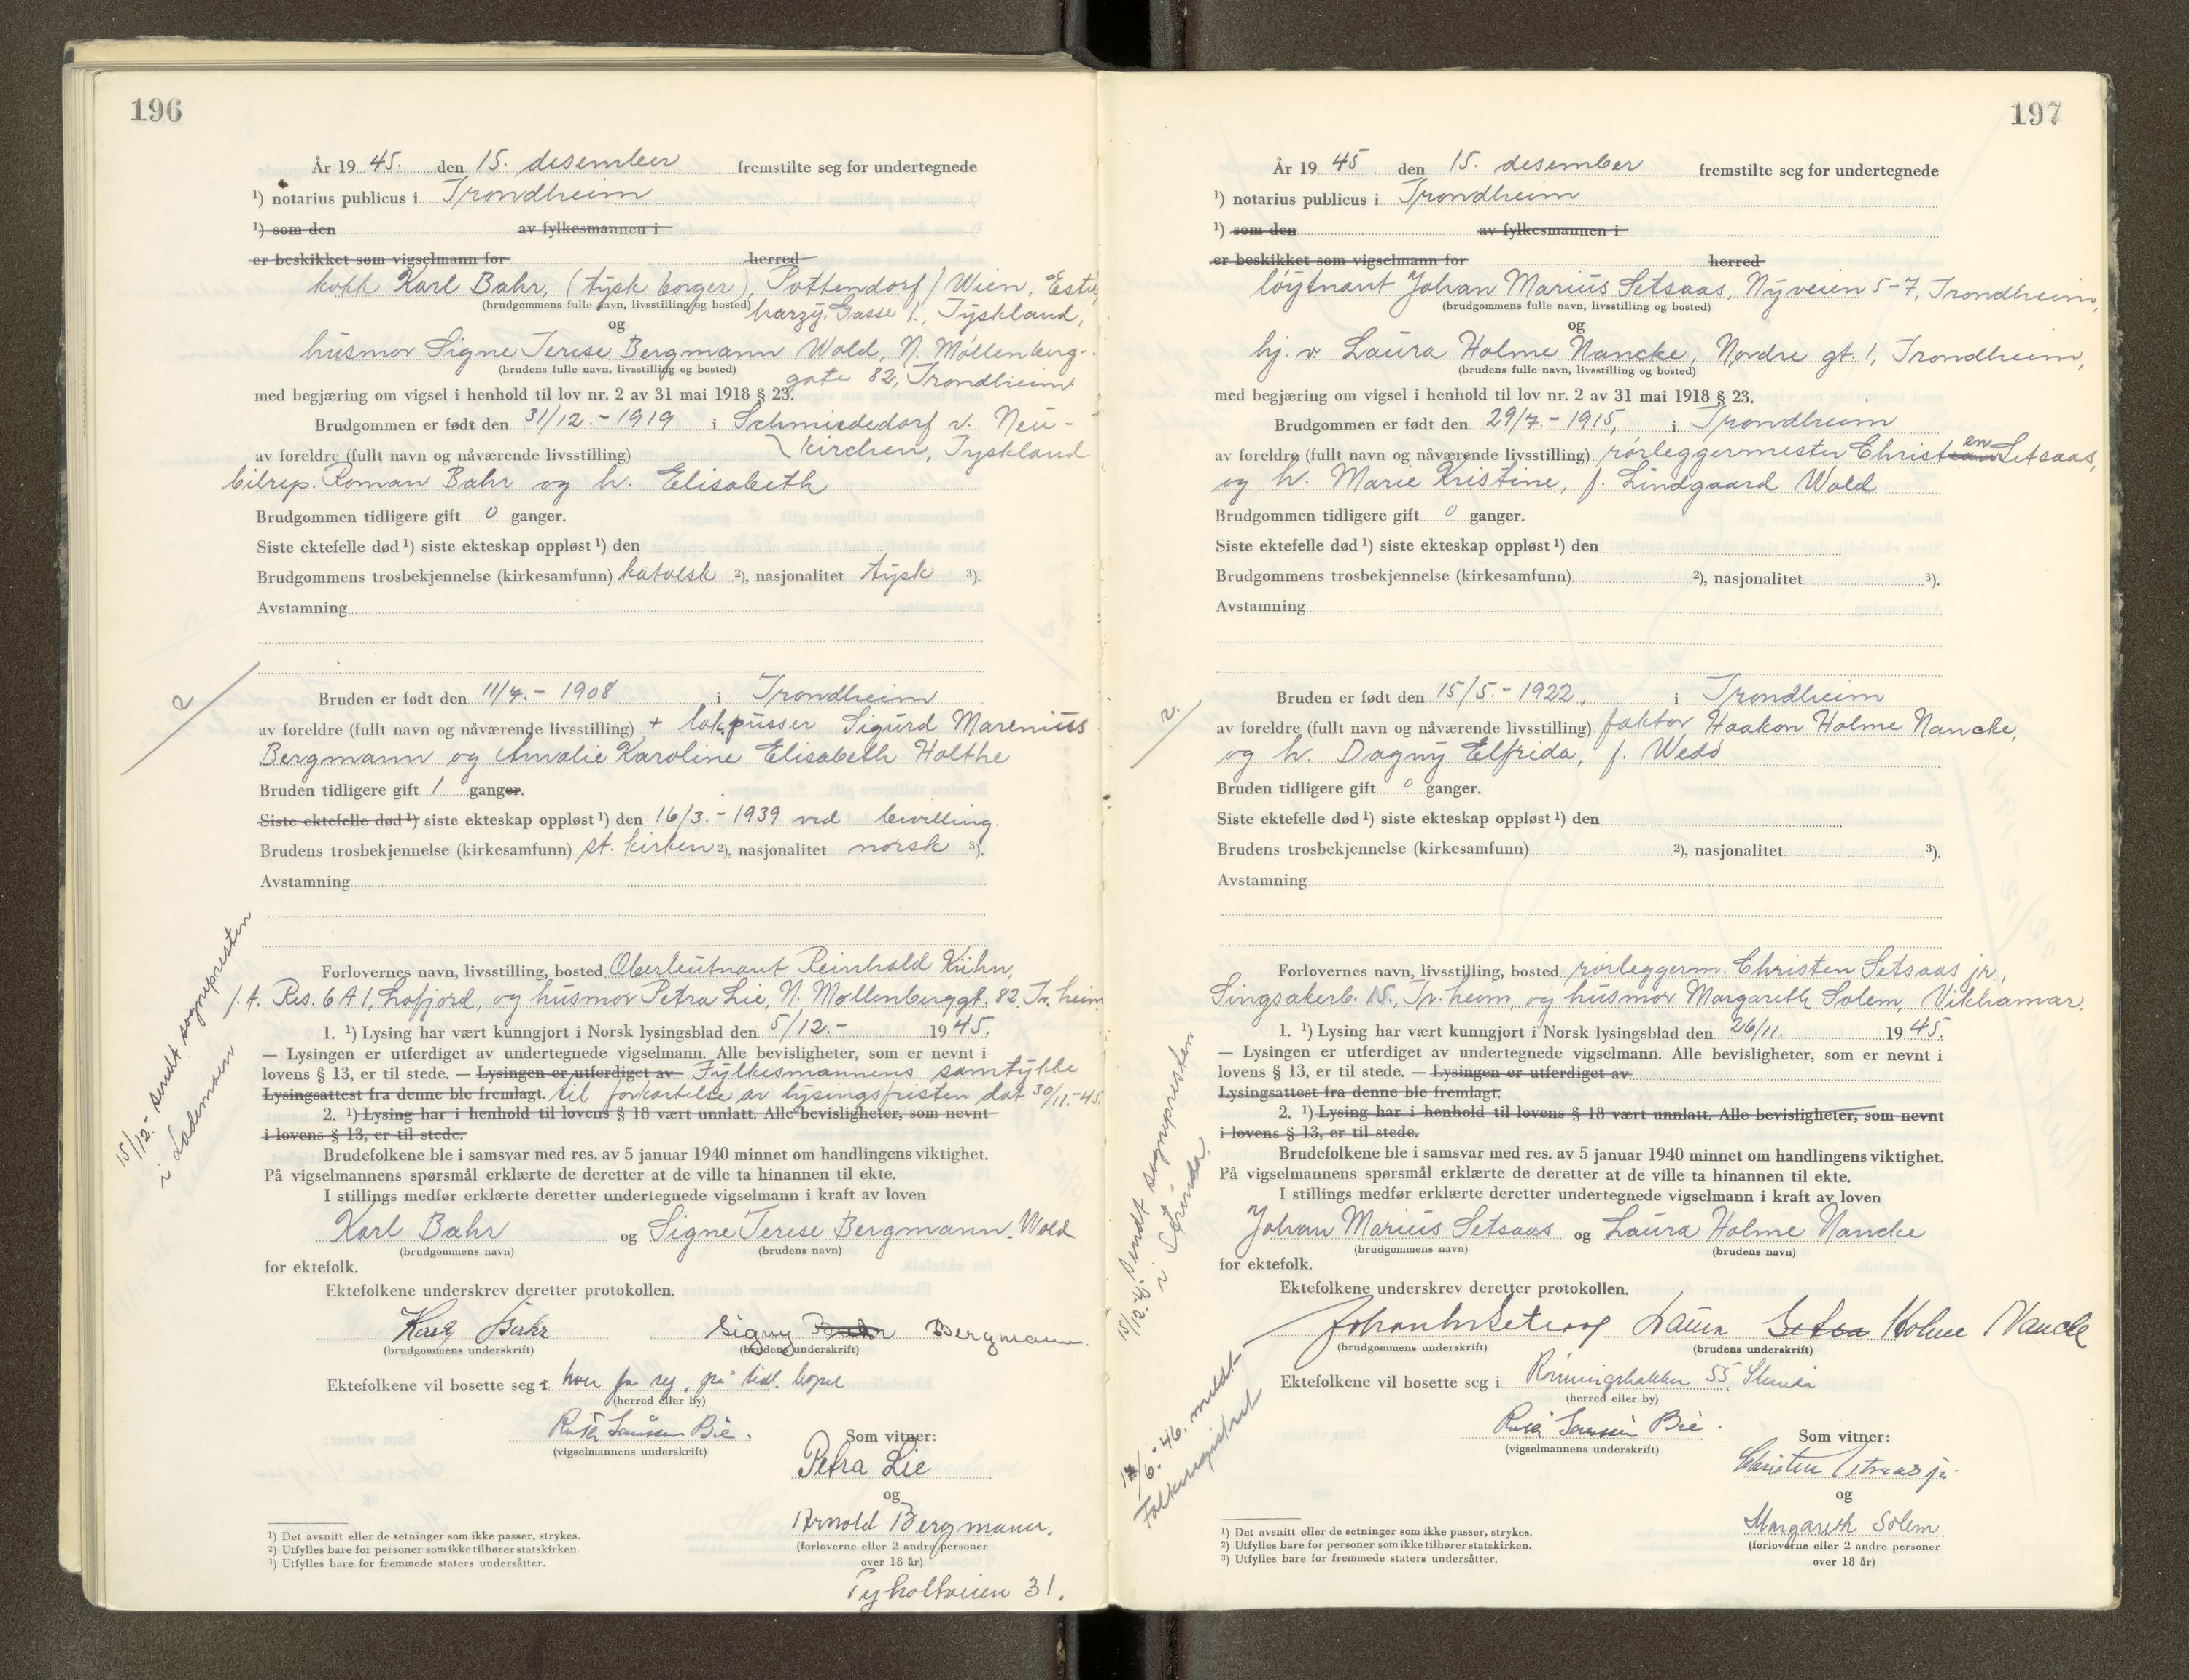 196
År 19 45. den 15. desember fremstilte seg for undertegnede
¹) notarius publicus i Trondheim
¹) som den av fylkesmannen i
er beskikket som vigselmann for herred
kokk Karl Bahr, (tysk borger), Pottendorf/Wien, Ester-
(brudgommens fulle navn, livsstilling og bosted) harzy, Gasse 1., Tyskland,
og
husmor Signe Terese Bergmann Wold, N. Møllenberg-
(brudens fulle navn, livsstilling og bosted) gate 82, Trondheim
med begjæring om vigsel i henhold til lov nr. 2 av 31 mai 1918 § 23.
Brudgommen er født den 31/12.-1919 i Schmiededorf v. Neu-
av foreldre (fullt navn og nåværende livsstilling) kirchen, Tyskland
bilrep. Roman Bahr og h. Elisabeth
Brudgommen tidligere gift 0 ganger.
Siste ektefelle død ¹) siste ekteskap oppløst ¹) den
Brudgommens trosbekjennelse (kirkesamfunn) katolsk ²), nasjonalitet tysk ³).
Avstamning
2
Bruden er født den 11/7.- 1908 i Trondheim
av foreldre (fullt navn og nåværende livsstilling) + lok.pusser Sigurd Marenius
Bergmann og Amalie Karoline Elisabeth Holthe
Bruden tidligere gift 1 ganger.
Siste ektefelle død ¹) siste ekteskap oppløst ¹) den 16/3.- 1939 ved bevilling.
Brudens trosbekjennelse (kirkesamfunn) st. kirken ²), nasjonalitet norsk ³).
Avstamning
Forlovernes navn, livsstilling, bosted Oberleutnant Reinhold Kühn,
f.t. Res. 6 A 1, Lofjord, og husmor Petra Lie, N. Møllenberggt. 82, Tr.heim
1. ¹) Lysing har vært kunngjort i Norsk lysingsblad den 5/12.- 1945.
— Lysingen er utferdiget av undertegnede vigselmann. Alle bevisligheter, som er nevnt i
lovens § 13, er til stede. — Lysingen er utferdiget av Fylkesmannens samtykke
Lysingsattest fra denne ble fremlagt. til forkortelse av lysingsfristen dat 30/11.-45.
2. ¹) Lysing har i henhold til lovens § 18 vært unnlatt. Alle bevisligheter, som nevnt
i lovens § 13, er til stede.
Brudefolkene ble i samsvar med res. av 5 januar 1940 minnet om handlingens viktighet.
På vigselmannens spørsmål erklærte de deretter at de ville ta hinannen til ekte.
I stillings medfør erklærte deretter undertegnede vigselmann i kraft av loven
Karl Bahr og Signe Terese Bergmann Wold
(brudgommens navn) (brudens navn)
for ektefolk.
Ektefolkene underskrev deretter protokollen.
Karl Bahr Signy Bahr Bergmann.
(brudgommens underskrift) (brudens underskrift)
Ektefolkene vil bosette seg i hver for seg, på tidl. bopel
(herred eller by)
Ruth Sørnssen Bie.
(vigselmannens underskrift)
Som vitner:
Petra Lie
og
Arnold Bergmann.
(forloverne eller 2 andre personer
over 18 år)
Tyholtveien 31.
¹) Det avsnitt eller de setninger som ikke passer, strykes.
²) Utfylles bare for personer som ikke tilhører statskirken.
³) Utfylles bare for fremmede staters undersåtter.
15/12.- sendt sognepresten
i Lademoen
197
År 19 45 den 15. desember fremstilte seg for undertegnede
¹) notarius publicus i Trondheim
¹) som den av fylkesmannen i
er beskikket som vigselmann for herred
løytnant Johan Marius Setsaas, Nyveien 5-7, Trondheim,
(brudgommens fulle navn, livsstilling og bosted)
og
hj. v. Laura Holme Nancke, Nordre gt. 1, Trondheim,
(brudens fulle navn, livsstilling og bosted)
med begjæring om vigsel i henhold til lov nr. 2 av 31 mai 1918 § 23.
Brudgommen er født den 29/7.- 1915, i Trondheim
av foreldre (fullt navn og nåværende livsstilling) rørleggermester Christen Setsaas,
og h. Marie Kristine, f. Lindgaard Wold
Brudgommen tidligere gift 0 ganger.
Siste ektefelle død ¹) siste ekteskap oppløst ¹) den
Brudgommens trosbekjennelse (kirkesamfunn) ²), nasjonalitet ³).
Avstamning
2.
Bruden er født den 15/5.- 1922, i Trondheim
av foreldre (fullt navn og nåværende livsstilling) faktor Haakon Holme Nancke,
og h. Dagny Elfrida, f. Wedø
Bruden tidligere gift 0 ganger.
Siste ektefelle død ¹) siste ekteskap oppløst ¹) den
Brudens trosbekjennelse (kirkesamfunn) ²), nasjonalitet ³).
Avstamning
Forlovernes navn, livsstilling, bosted rørleggerm. Christen Setsaas jr.,
Singsakerb. 15., Tr.heim, og husmor Margareth Solem, Vikhamar.
1. ¹) Lysing har vært kunngjort i Norsk lysingsblad den 26/11. 1945.
— Lysingen er utferdiget av undertegnede vigselmann. Alle bevisligheter, som er nevnt i
lovens § 13, er til stede. — Lysingen er utferdiget av
Lysingsattest fra denne ble fremlagt.
2. ¹) Lysing har i henhold til lovens § 18 vært unnlatt. Alle bevisligheter, som nevnt
i lovens § 13, er til stede.
Brudefolkene ble i samsvar med res. av 5 januar 1940 minnet om handlingens viktighet.
På vigselmannens spørsmål erklærte de deretter at de ville ta hinannen til ekte.
I stillings medfør erklærte deretter undertegnede vigselmann i kraft av loven
Johan Marius Setsaas og Laura Holme Nancke
(brudgommens navn) (brudens navn)
for ektefolk.
Ektefolkene underskrev deretter protokollen.
Johan M Setsaas Laura Setsa Holme Nancke
(brudgommens underskrift) (brudens underskrift)
Ektefolkene vil bosette seg i Rønningsbakken 55, Strinda
(herred eller by)
Ruth Sørnssen Bie.
(vigselmannens underskrift)
Som vitner:
Christen Setsaas jr.
og
Margareth Solem
(forloverne eller 2 andre personer
over 18 år)
¹) Det avsnitt eller de setninger som ikke passer, strykes.
²) Utfylles bare for personer som ikke tilhører statskirken.
³) Utfylles bare for fremmede staters undersåtter.
15/12.-45 sendt sognepresten
i Strinda.
/6.-46. meldt
Folkeregistret